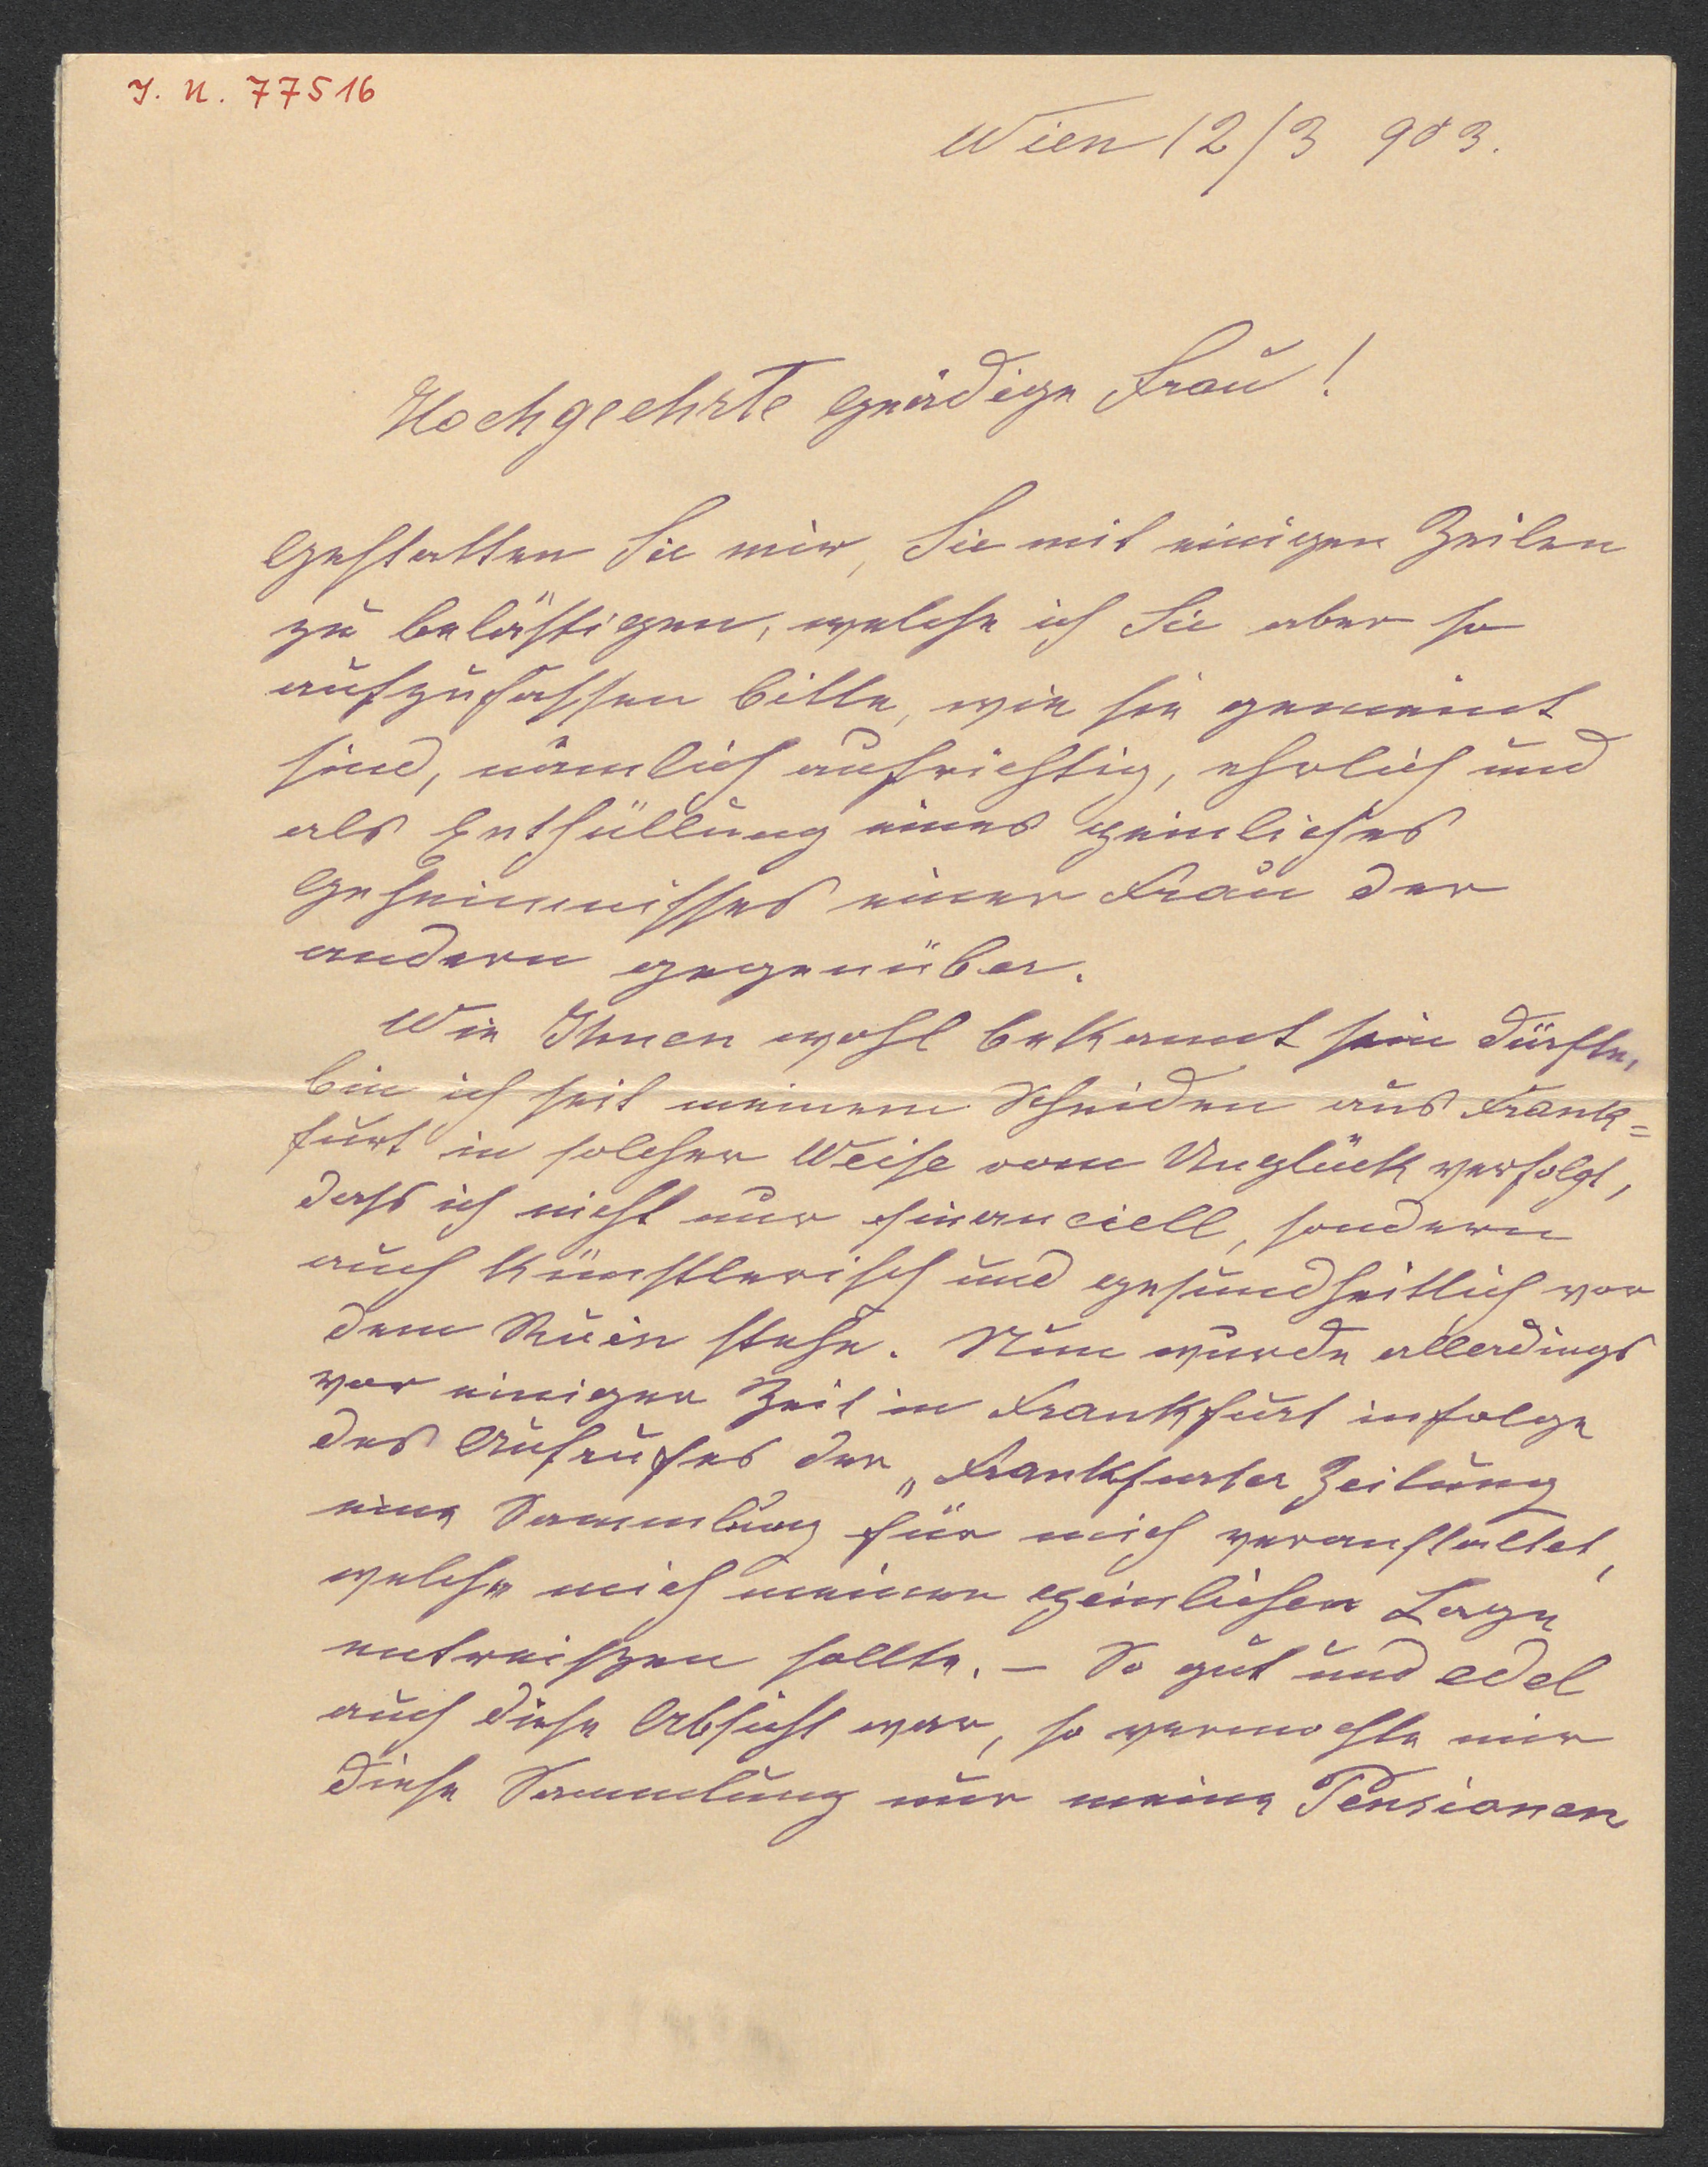 I. N. 77516
Wien 12/3 903.
Hochgeehrte gnädige Frau!
Gestatten Sie mir, Sie mit einigen Zeilen
zu belästigen, welche ich Sie aber so
aufzufassen bitte, wie sie gemeint
sind, nämlich aufrichtig, ehrlich und
als Enthüllung eines peinliches
Geheimnisses einer Frau der
andern gegenüber.
Wie Ihnen wohl bekannt sein dürfte,
bin ich seit meinem Scheiden aus Frank=
furt in solcher Weise vom Unglück verfolgt,
dass ich nicht nur financiell, sondern
auch künstlerisch und gesundheitlich vor
dem Ruin stehe. Nun wurde allerdings
vor einiger Zeit in Frankfurt infolge
des Aufrufes der „Frankfurter Zeitung
eine Sammlung für mich veranstaltet,
welche mich meiner peinlichen Lage
entreißen sollte. – So gut und edel
auch diese Absicht war, so vermochte mir
diese Sammlung nur meine Pensionen